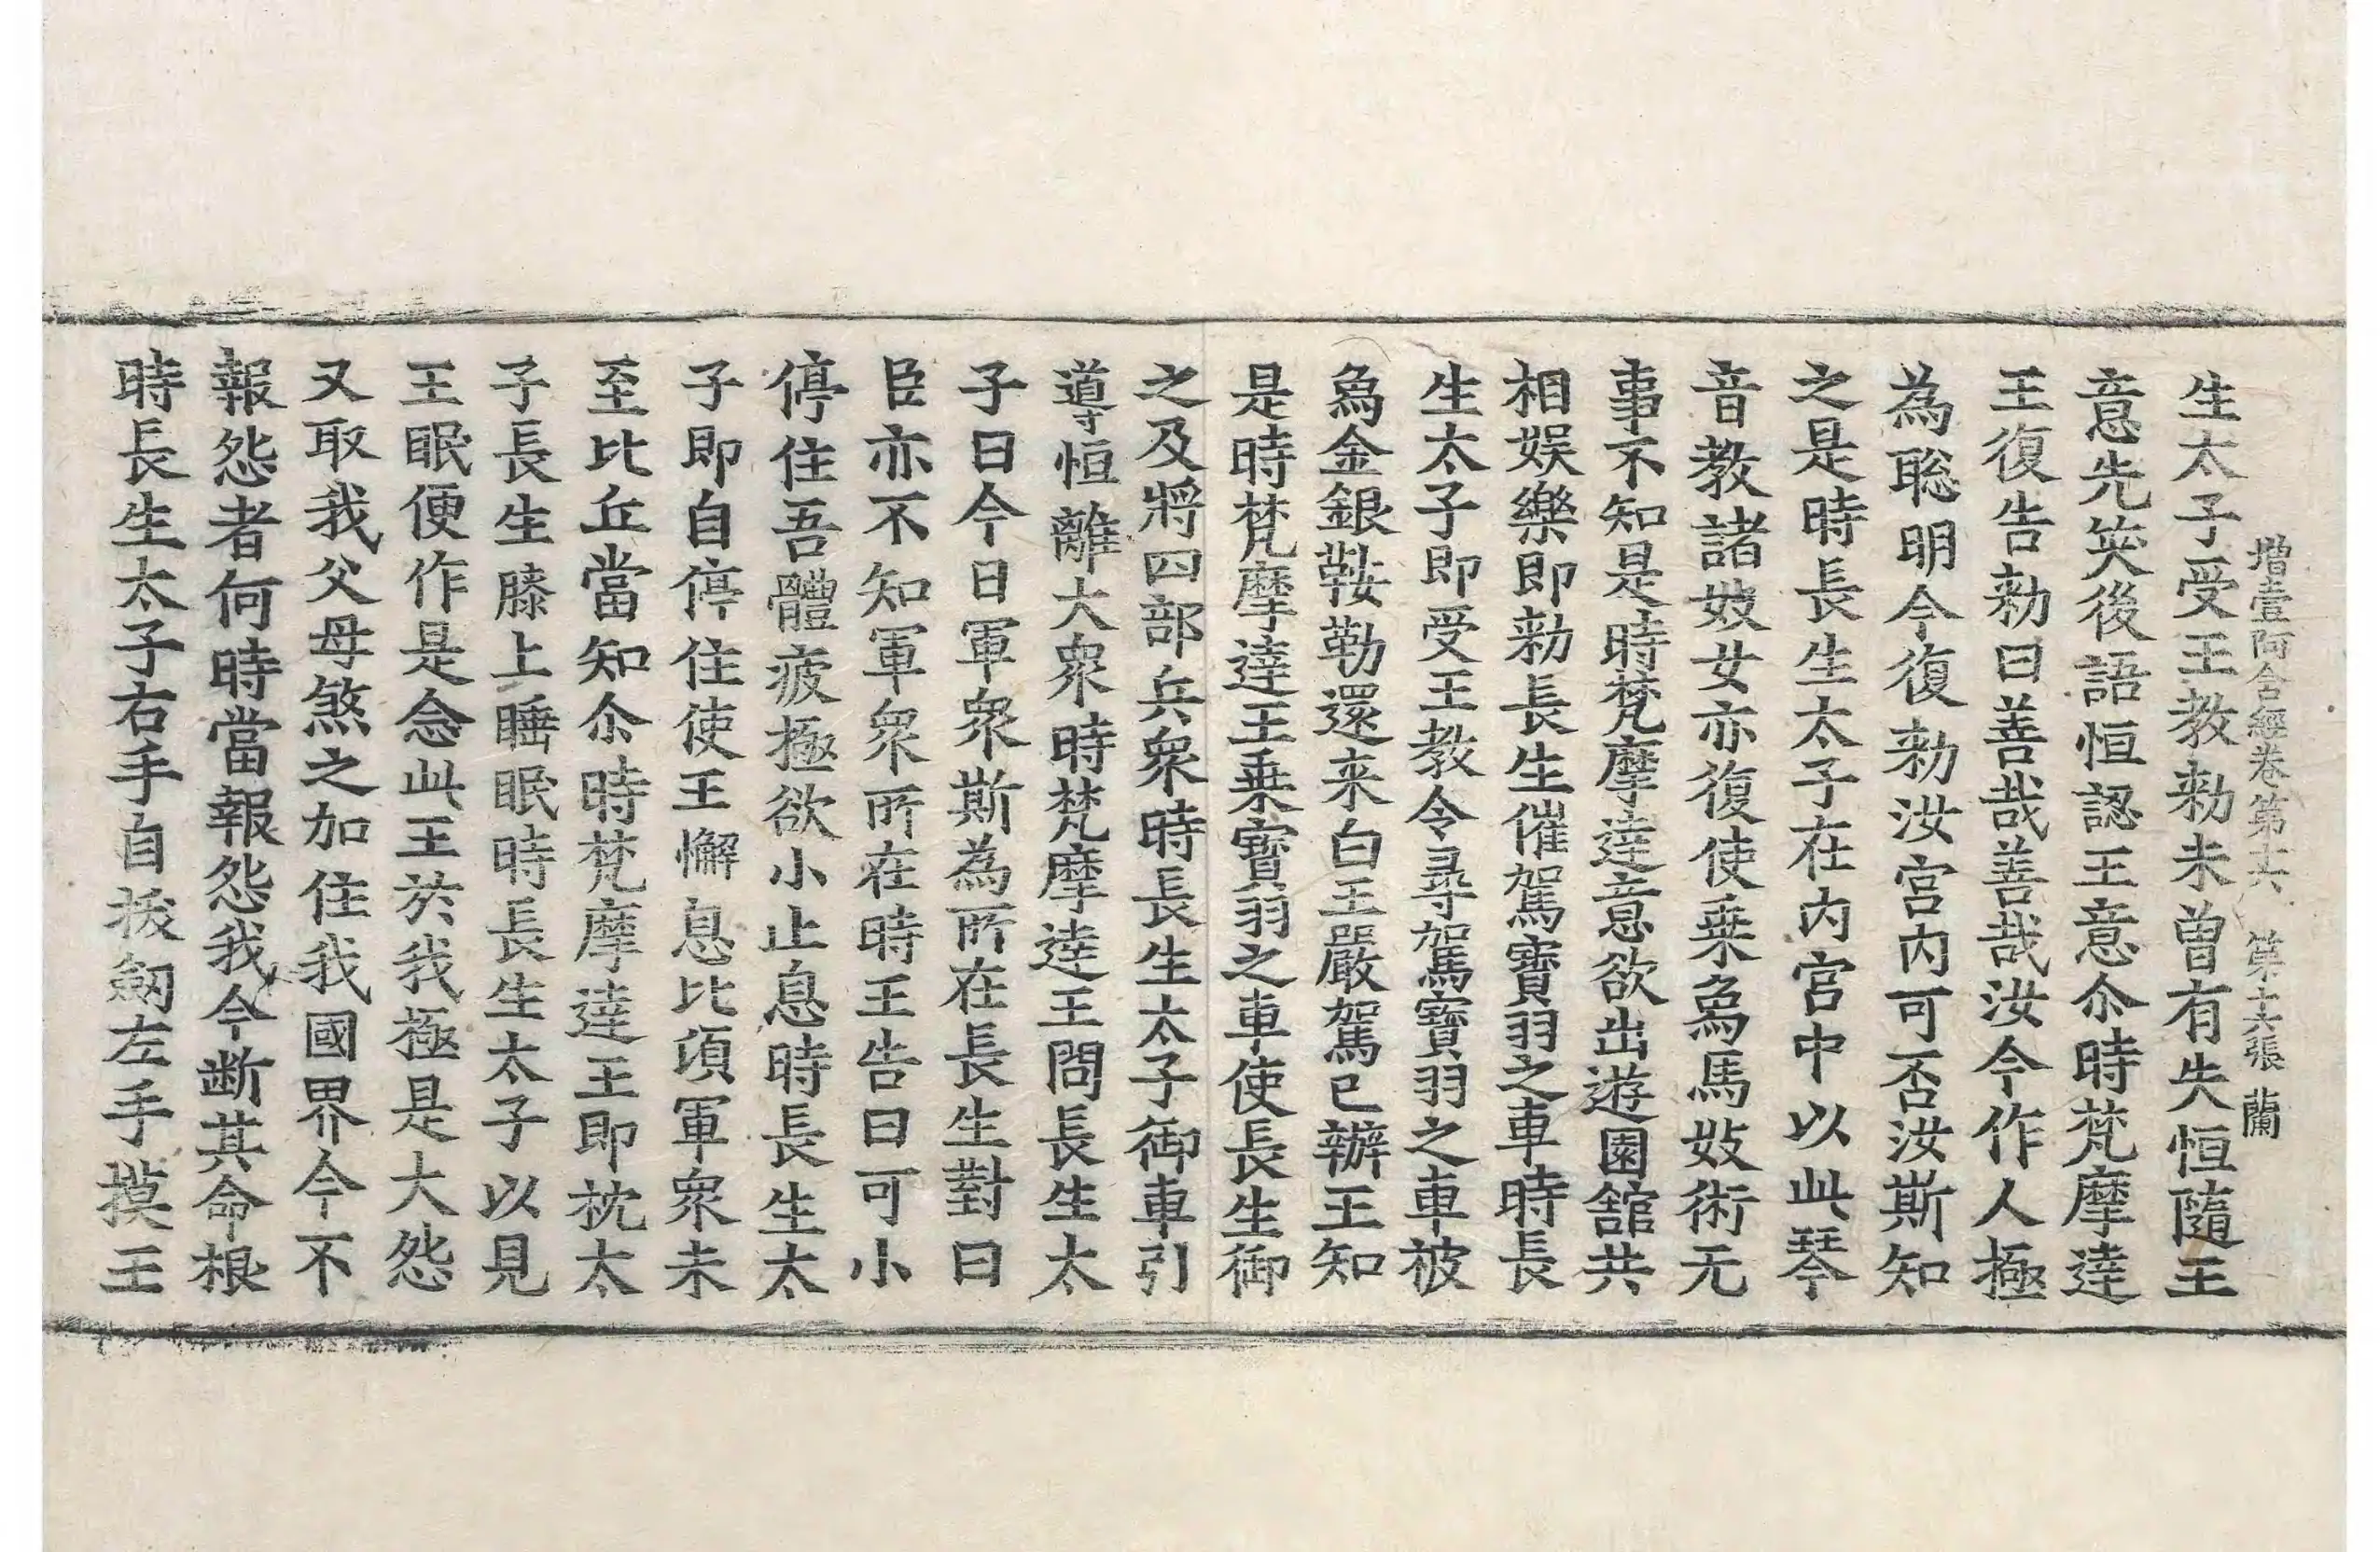 增壹阿含經卷第十六　第十六張　蘭
生太子受王教勑未曾有失恒隨王
意先笑後語恒認王意尒時梵摩達
王復告勑曰善哉善哉汝今作人極
為聡明今復勑汝宮内可否汝斯知
之是時長生太子在内宮中以此琴
音教諸妓女亦復使乗象馬妓術无
事不知是時梵摩達意欲出遊園舘共
相娱樂即勑長生催駕寶羽之車時長
生太子即受王教令尋駕寶羽之車被
象金銀鞍勒還来白王嚴駕已辦王知
是時梵摩達王乗寶羽之車使長生御
之及將四部兵衆時長生太子御車引
導恒離大衆時梵摩達王問長生太
子曰今日軍衆斯為所在長生對曰
臣亦不知軍衆所在時王告曰可小
停住吾體疲極欲小止息時長生太
子即自停住使王懈息比頃軍衆未
至比丘當知尒時梵摩達王即枕太
子長生膝上睡眠時長生太子以見
王眠便作是念此王於我極是大怨
又取我父母煞之加住我國界今不
報怨者何時當報怨我今断其命根
時長生太子右手自拔劔左手摸王